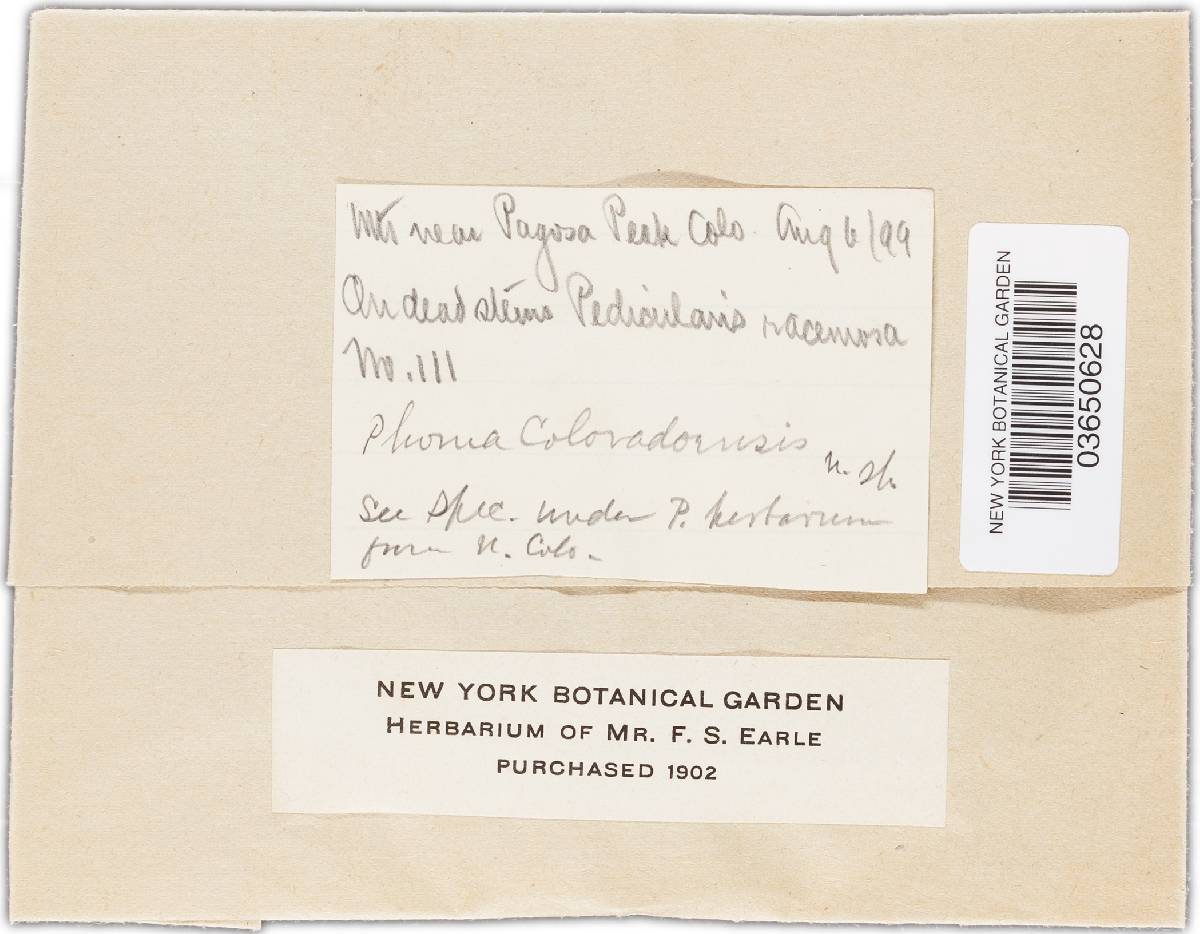 Mts near Pagosa Peak Colo. Aug 6/99
On dead stems Pedicularis racemosa
No. 111
Phoma Coloradoensis
n. sp.
See spec. under P. herbarum
from N. Colo.
NEW YORK BOTANICAL GARDEN
03650628
NEW YORK BOTANICAL GARDEN
HERBARIUM OF MR. F. S. EARLE
PURCHASED 1902